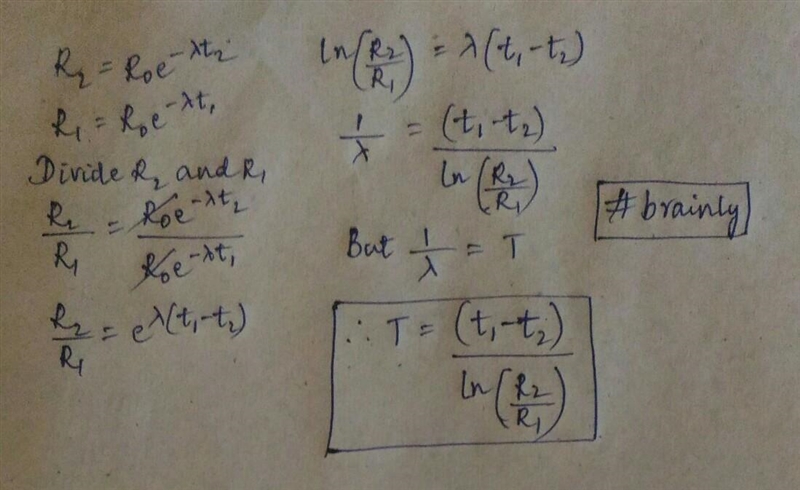 R₂ = R₀e^{-λt₂}
R₁ = R₀e^{-λt₁}
Divide R₂ and R₁
R₂/R₁ = R₀e^{-λt₂}/R₀e^{-λt₁}
R₂/R₁ = e^{λ(t₁-t₂)}
ln(R₂/R₁) = λ(t₁-t₂)
1/λ = (t₁-t₂)/ln(R₂/R₁)
But 1/λ = T
∴ T = (t₁-t₂)/ln(R₂/R₁)
#brainly